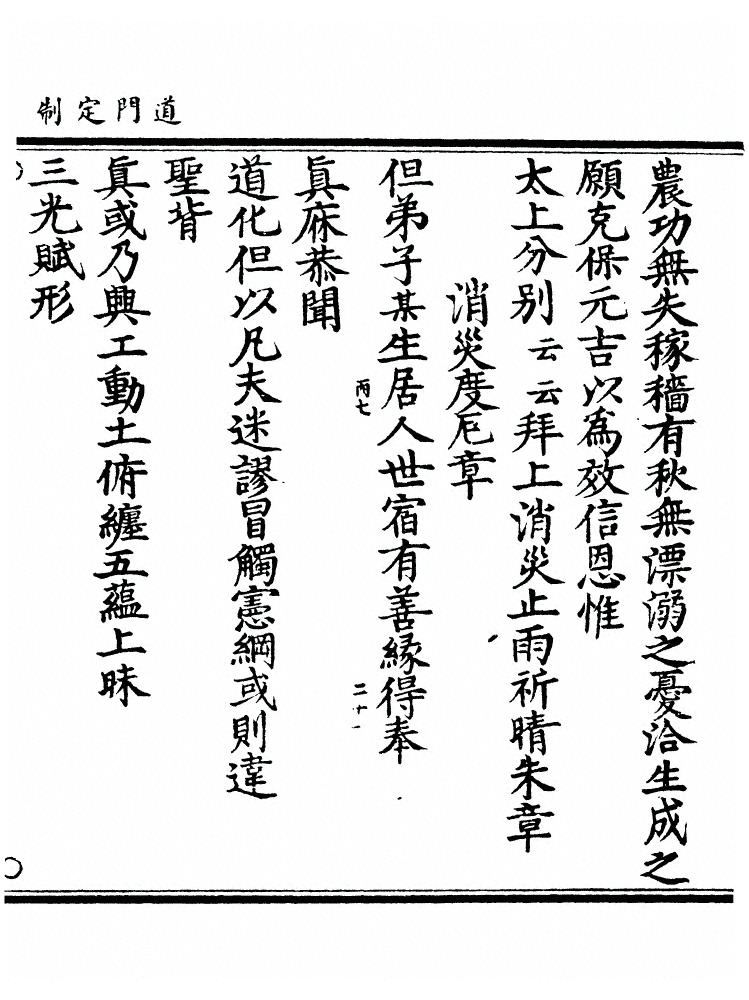 道門定制
農功無失稼穡有秋無漂溺之憂洽生成之
願克保元吉以爲效信恩惟
太上分別云云拜上消災止雨祈晴朱章
消災度厄章
但弟子某生居人世宿有善緣得奉
丙七
二十一
眞庥恭聞
道化但以凡夫迷謬冒觸憲綱或則違
聖背
眞或乃興工動土俯纏五蘊上昧
三光賦形